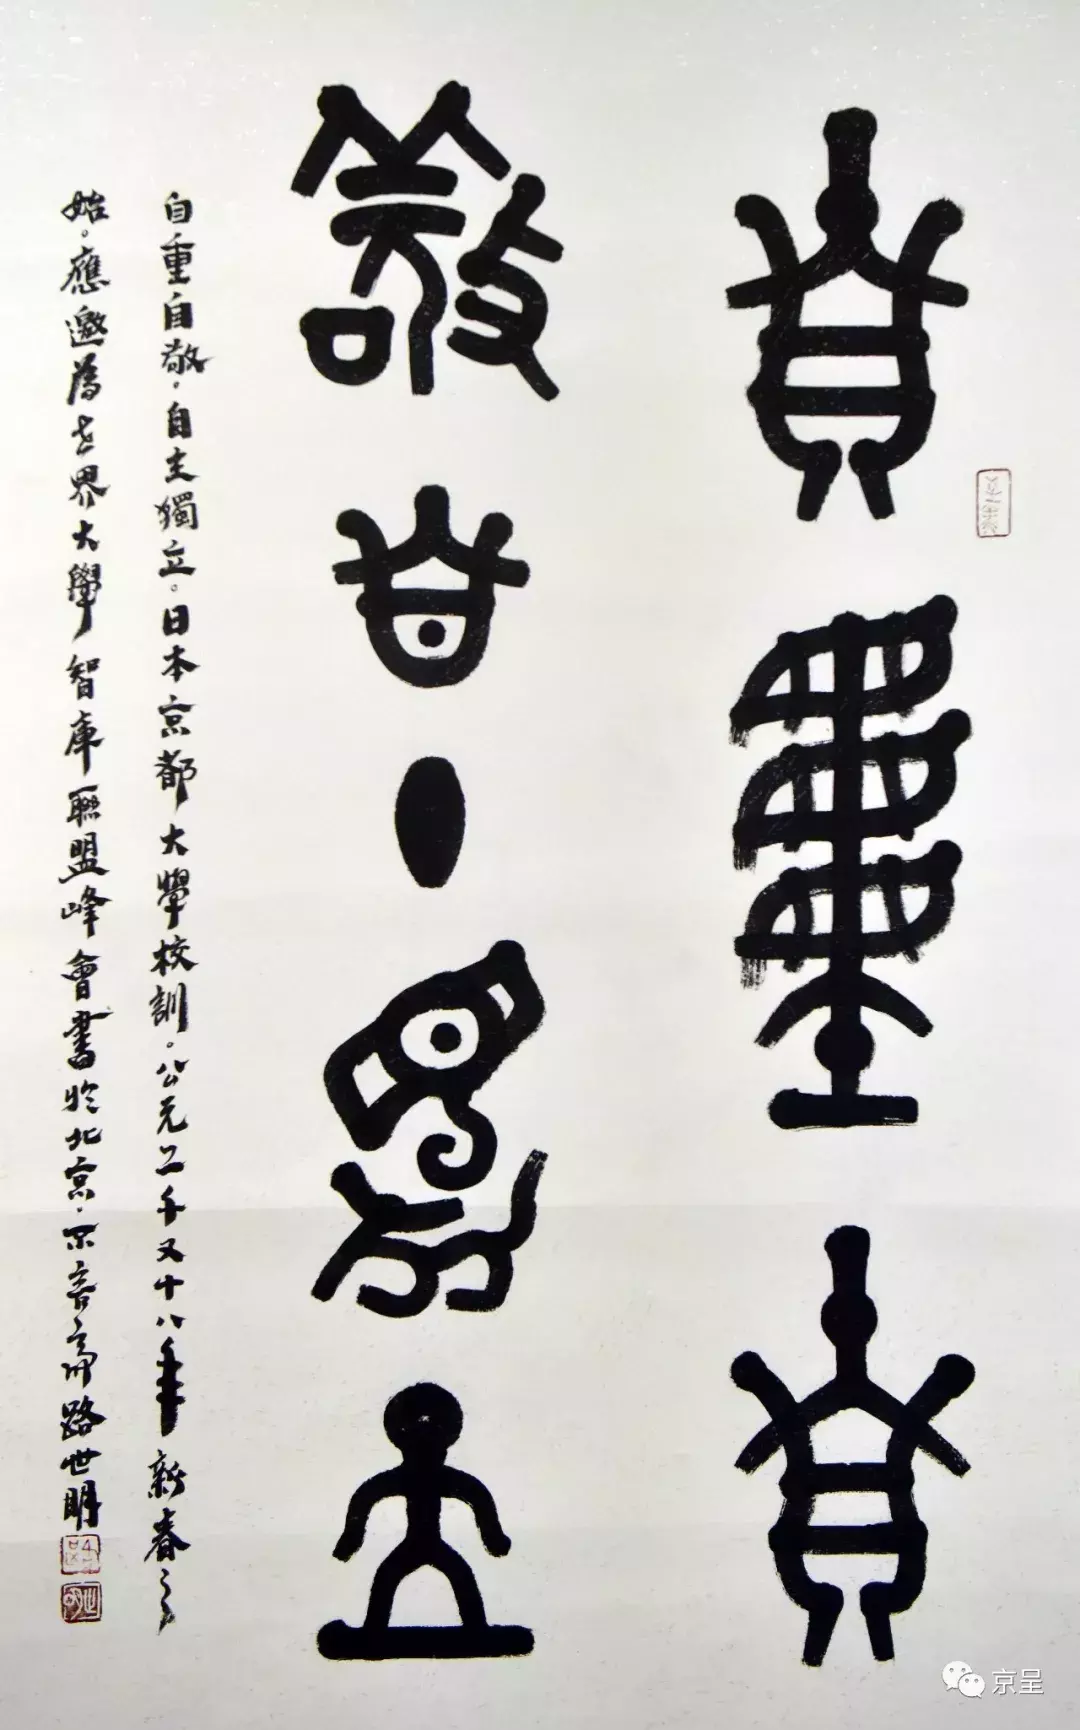 自重自
敬自主獨立
自重自敬，自主獨立。日本京都大學校訓。公元二千又十八年新春之
始。應邀為世界大學智庫聯盟峰會書於北京，齋路世明
京呈